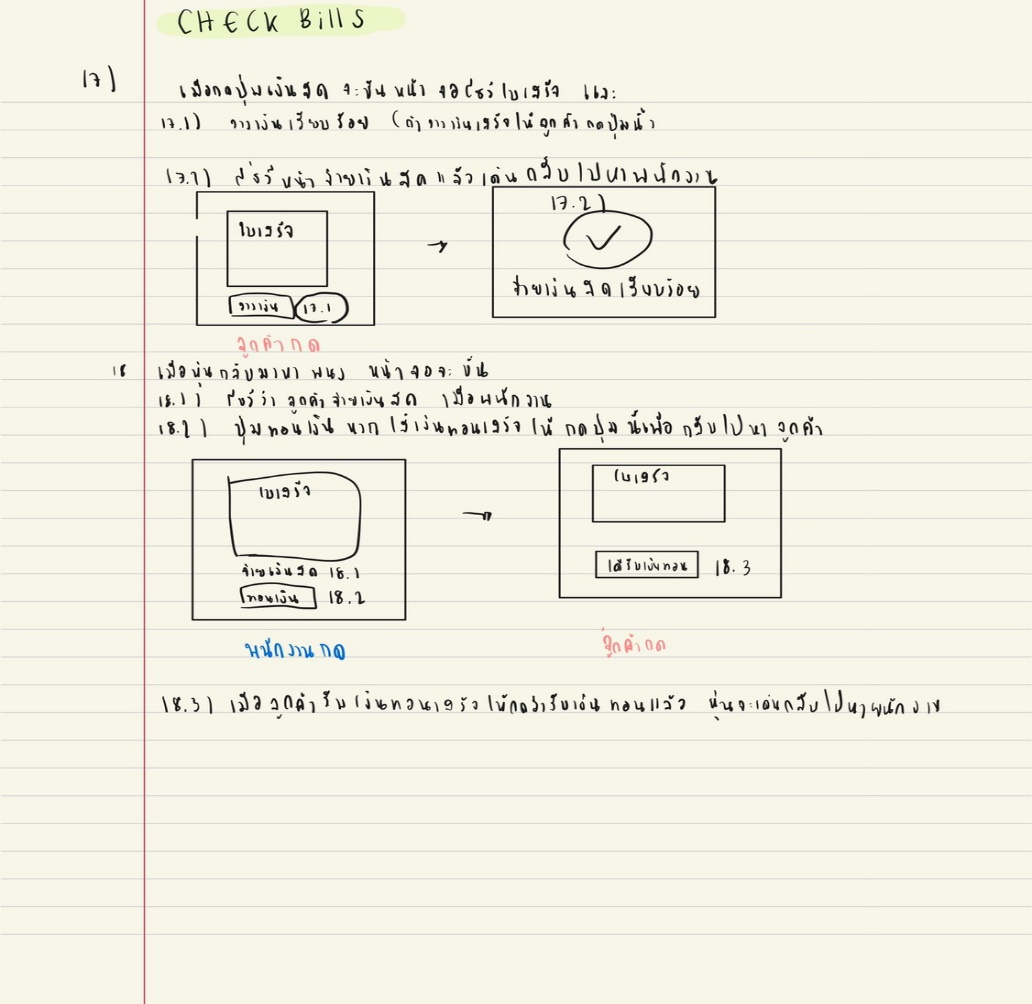 CHECK Bills
17) เมื่อกดปุ่มเงินสด จะขึ้นหน้าจอโชว์ใบเสร็จ และ
17.1) วางเงินเรียบร้อย (ถ้าวางเงินเสร็จให้ลูกค้ากดปุ่มนี้)
17.2) โชว์หน้าจ่ายเงินสดแล้วเดินกลับไปหาพนักงาน
ใบเสร็จ
วางเงิน 17.1
→
17.2)
✓
จ่ายเงินสดเรียบร้อย
ลูกค้ากด
18 เมื่อหุ่นกลับมาหา พนง หน้าจอจะขึ้น
18.1) โชว์ว่า ลูกค้าจ่ายเงินสด เมื่อพนักงาน
18.2) ปุ่มทอนเงิน หากใส่เงินทอนเสร็จให้กดปุ่มนี้เพื่อกลับไปหาลูกค้า
ใบเสร็จ
จ่ายเงินสด 18.1
ทอนเงิน 18.2
→
ใบเสร็จ
ได้รับเงินทอน 18.3
พนักงานกด
ลูกค้ากด
18.3) เมื่อลูกค้ารับเงินทอนเสร็จ ให้กดว่ารับเงินทอนแล้ว หุ่นจะเดินกลับไปหาพนักงาน